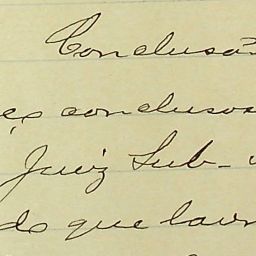 Conclusã
ço conclusos
Juiz Sub-
do que lavr